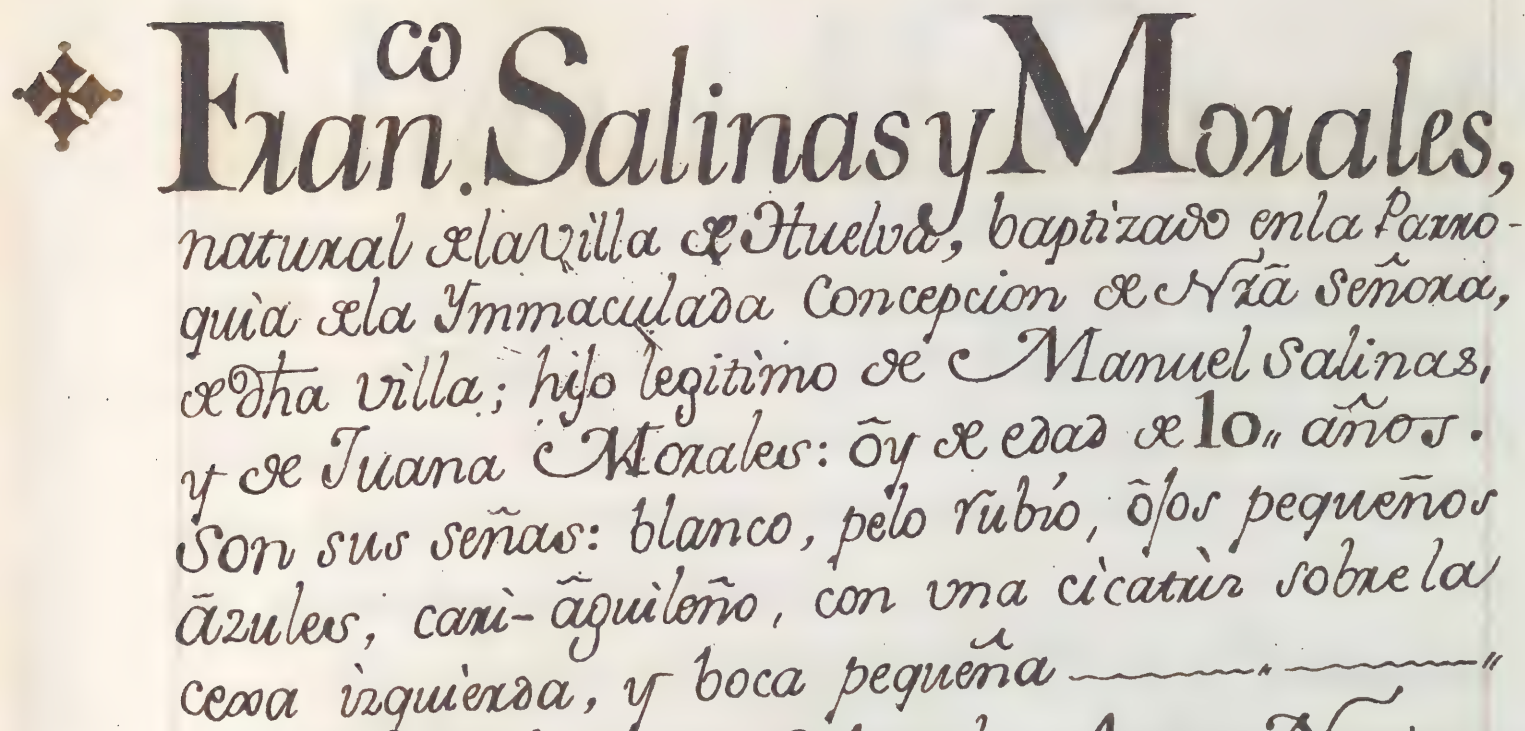 Fran.co Salinas y Morales,
natural de la Villa de Huelva, baptizado en la Parro-
quia de la Ymmaculada Concepcion de Nrã Señora,
de dha villa; hijo legitimo de Manuel Salinas,
y de Juana Morales: ôy de edad de 10,, años.
Son sus señas: blanco, pelo rubio, ôjos pequeños
āzules, cari-āguileño, con vna cicatriz sobre la
cexa izquierda, y boca pequeña